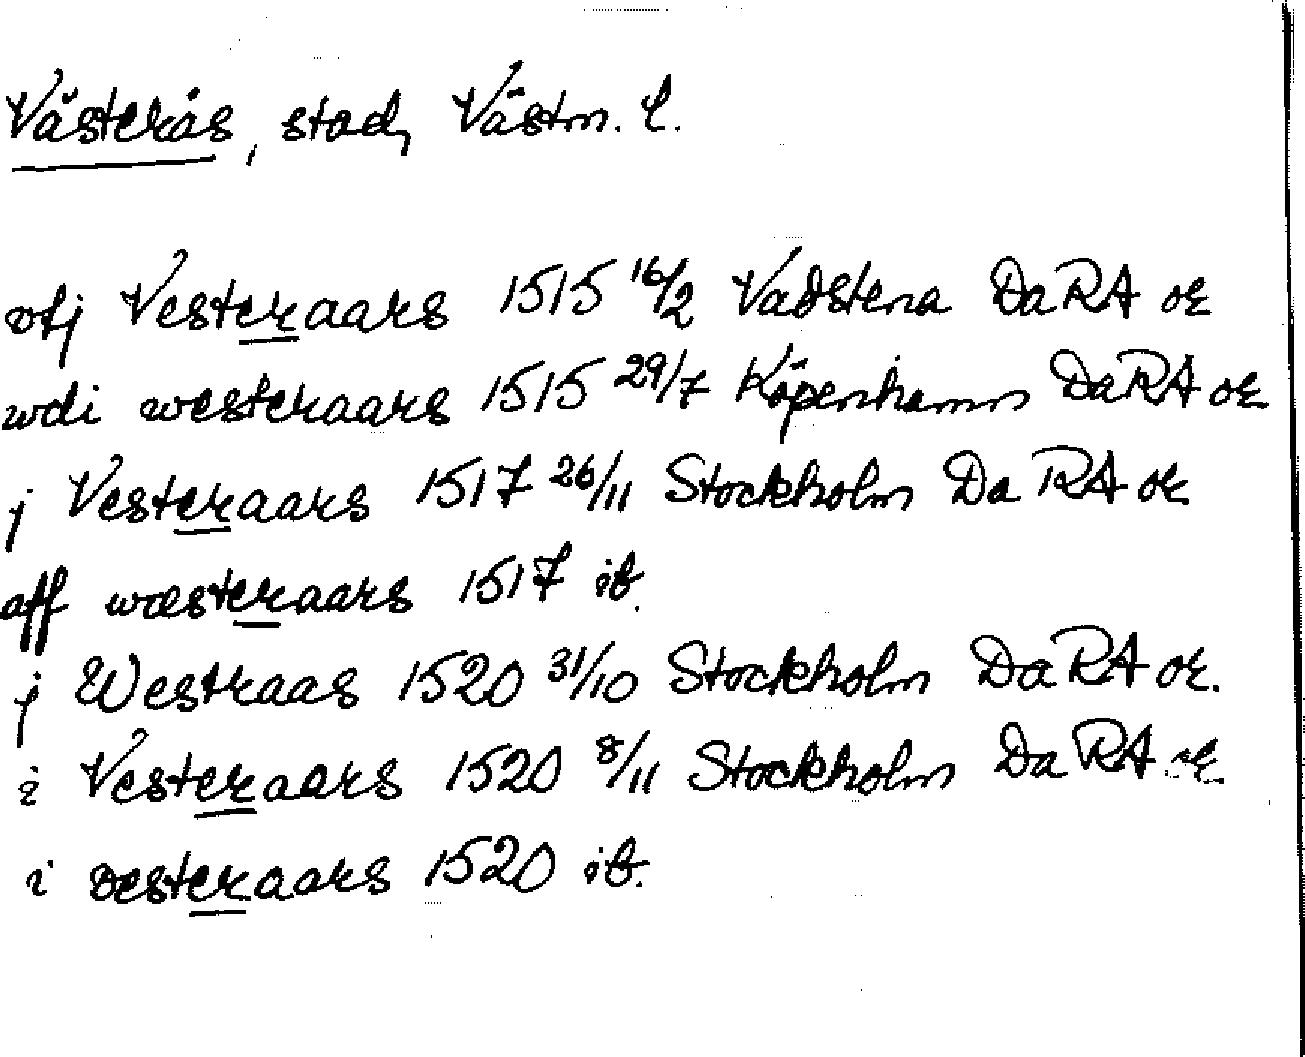 Västerås, stad, Västm. l.
vtj Vesteraars 1515 16/2 Vadstena DaRA or
wdi westeraars 1515 29/7 Köpenhamn DaRA or
j Vesteraars 1517 26/11 Stockholm DaRA or
aff wæsteraars 1517 ib.
j Westraas 1520 31/10 Stockholm DaRA or.
i Vesteraars 1520 8/11 Stockholm DaRA or.
i vesteraars 1520 ib.